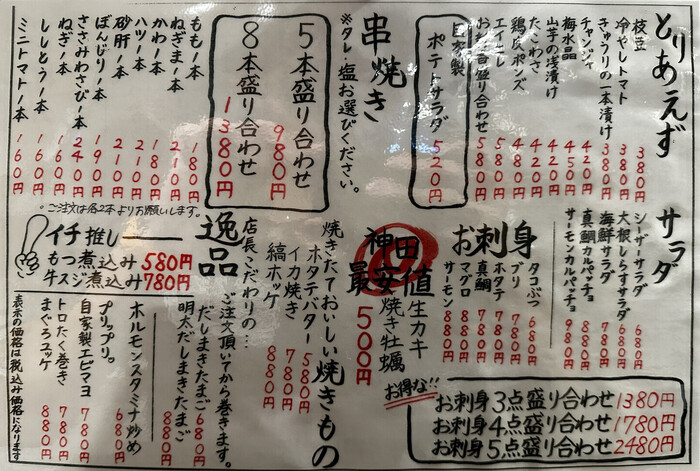 とりあえず
枝豆 380円
冷やしトマト 380円
きゅうりの一本漬け 380円
チャンジャ 420円
海水晶 450円
山芋の浅漬け 420円
たこわさ 420円
鶏皮ポンズ 480円
エイヒレ 580円
おつまみ盛り合わせ 580円
自家製
ポテトサラダ 520円
串焼き
※タレ・塩お選びください。
5本盛り合わせ 980円
8本盛り合わせ 1380円
もも1本 180円
ねぎま1本 210円
かわ1本 180円
ハツ1本 210円
砂肝1本 210円
ぼんじり1本 190円
ささみわさび1本 240円
ねぎ1本 160円
ししとう1本 160円
ミニトマト1本 160円
ご注文は各2本よりお願いします。
サラダ
シーザーサラダ 680円
大根しらすサラダ 680円
海鮮サラダ 780円
真鯛カルパッチョ 880円
サーモンカルパッチョ 980円
お刺身
タコぶつ 680円
ブリ 780円
ホタテ 780円
真鯛 880円
マグロ 880円
サーモン 880円
お得な!!
お刺身3点盛り合わせ 1380円
お刺身4点盛り合わせ 1780円
お刺身5点盛り合わせ 2480円
神田
最安値
生カキ
焼き牡蠣
500円
焼きたておいしい焼きもの
ホタテバター 580円
イカ焼き 780円
縞ホッケ 880円
逸品
店長こだわりの…
ご注文頂いてから巻きます。
だしまきたまご 680円
明太だしまきたまご 880円
イチ推し
もつ煮込み 580円
牛スジ煮込み 780円
ホルモンスタミナ炒め 680円
プリップリ。
自家製エビマヨ 780円
トロたく巻き 780円
まぐろユッケ 880円
表示の価格は税込み価格になります